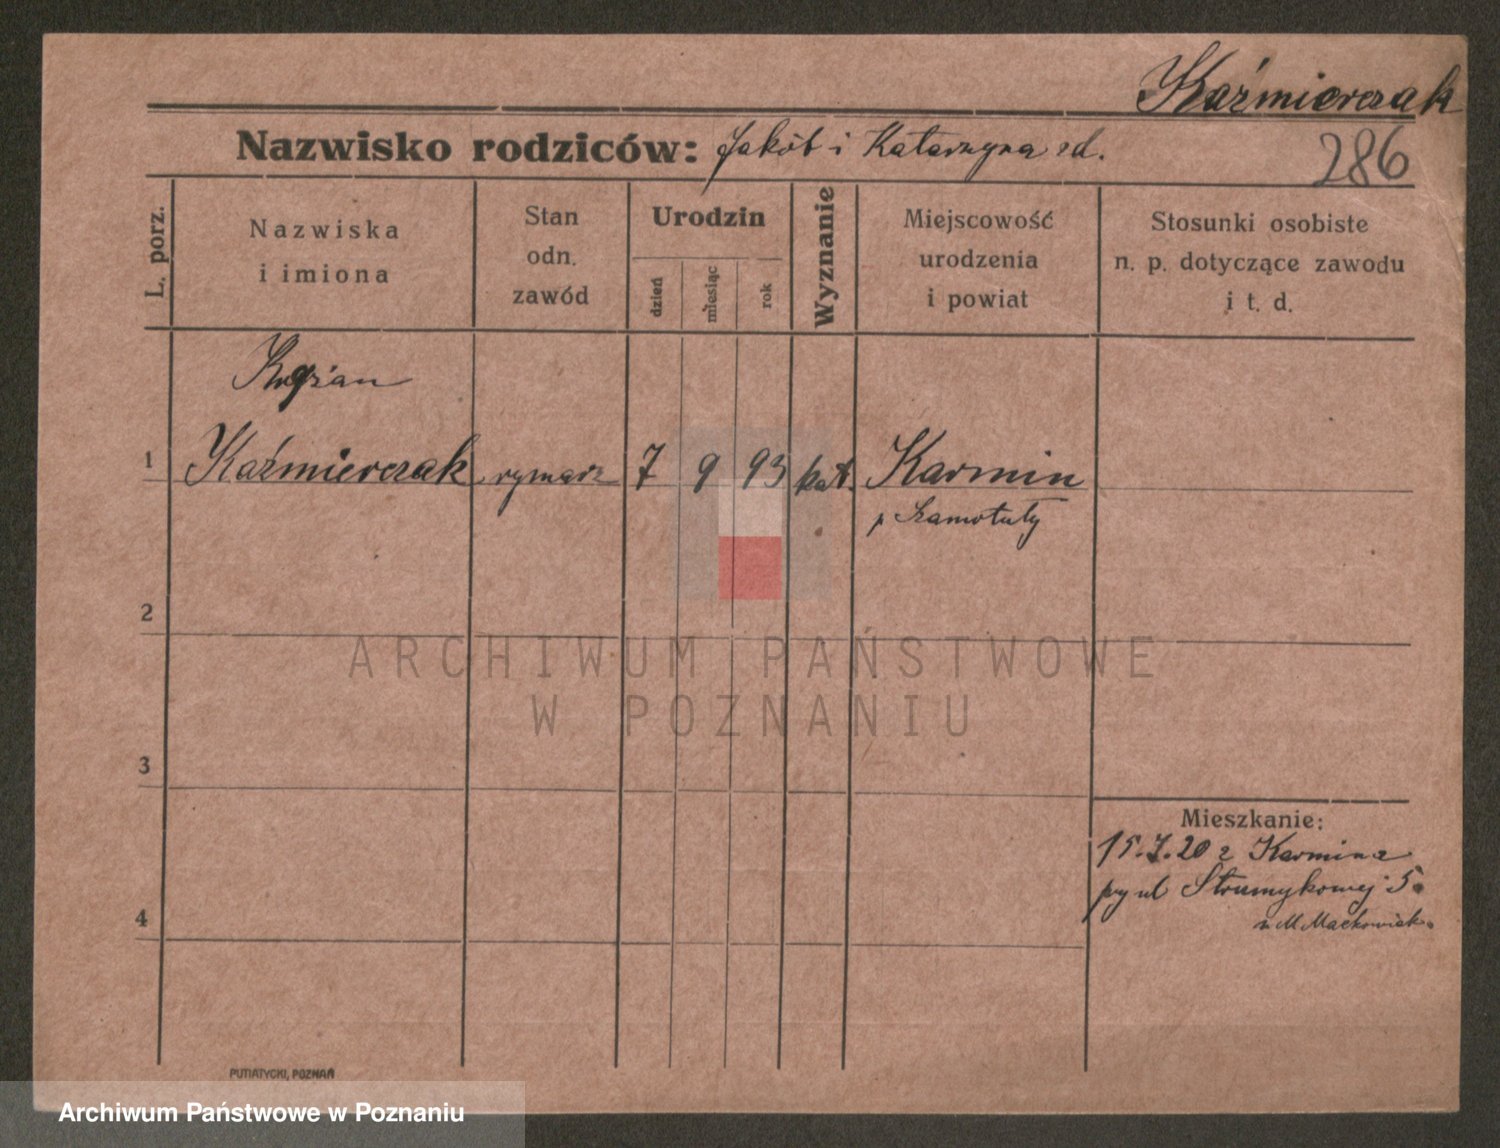 Kaźmierczak
Nazwisko rodziców: Jakób i Katarzyna zd.
286
L. porz.
Nazwiska
i imiona
Stan
odn.
zawód
Urodzin
dzień
miesiąc
rok
Wyznanie
Miejscowość
urodzenia
i powiat
Stosunki osobiste
n. p. dotyczące zawodu
i t. d.
1
Kaźmierczak rymarz 7 9 93 kat. Karmin
p Szamotuły
2
ARCHIWUM PAŃSTWOWE
W POZNANIU
3
Mieszkanie:
15.7.20 z Karmina
przy ul Strumykowej 5.
u M. Maćkowiak.
4
PUTIATYCKI, POZNAŃ
Archiwum Państwowe w Poznaniu